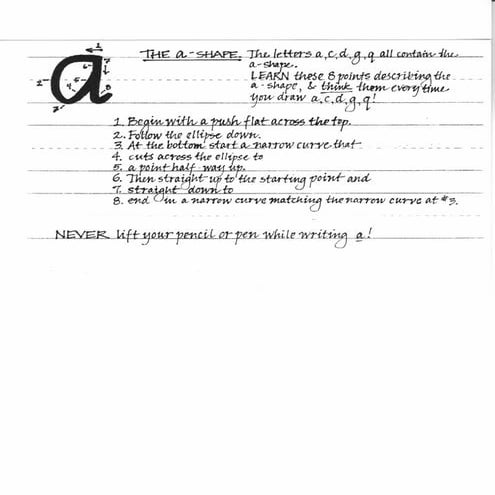 THE a-SHAPE. The letters a, c, d, g, q all contain the
a-shape.
LEARN these 8 points describing the
a-shape, & think them every time
you draw a, c, d, g, q!
a
1. Begin with a push flat across the top.
2. Follow the ellipse down.
3. At the bottom start a narrow curve that
4. cuts across the ellipse to
5. a point half way up.
6. Then straight up to the starting point and
7. straight down to
8. end in a narrow curve matching the narrow curve at #3.
NEVER lift your pencil or pen while writing a!